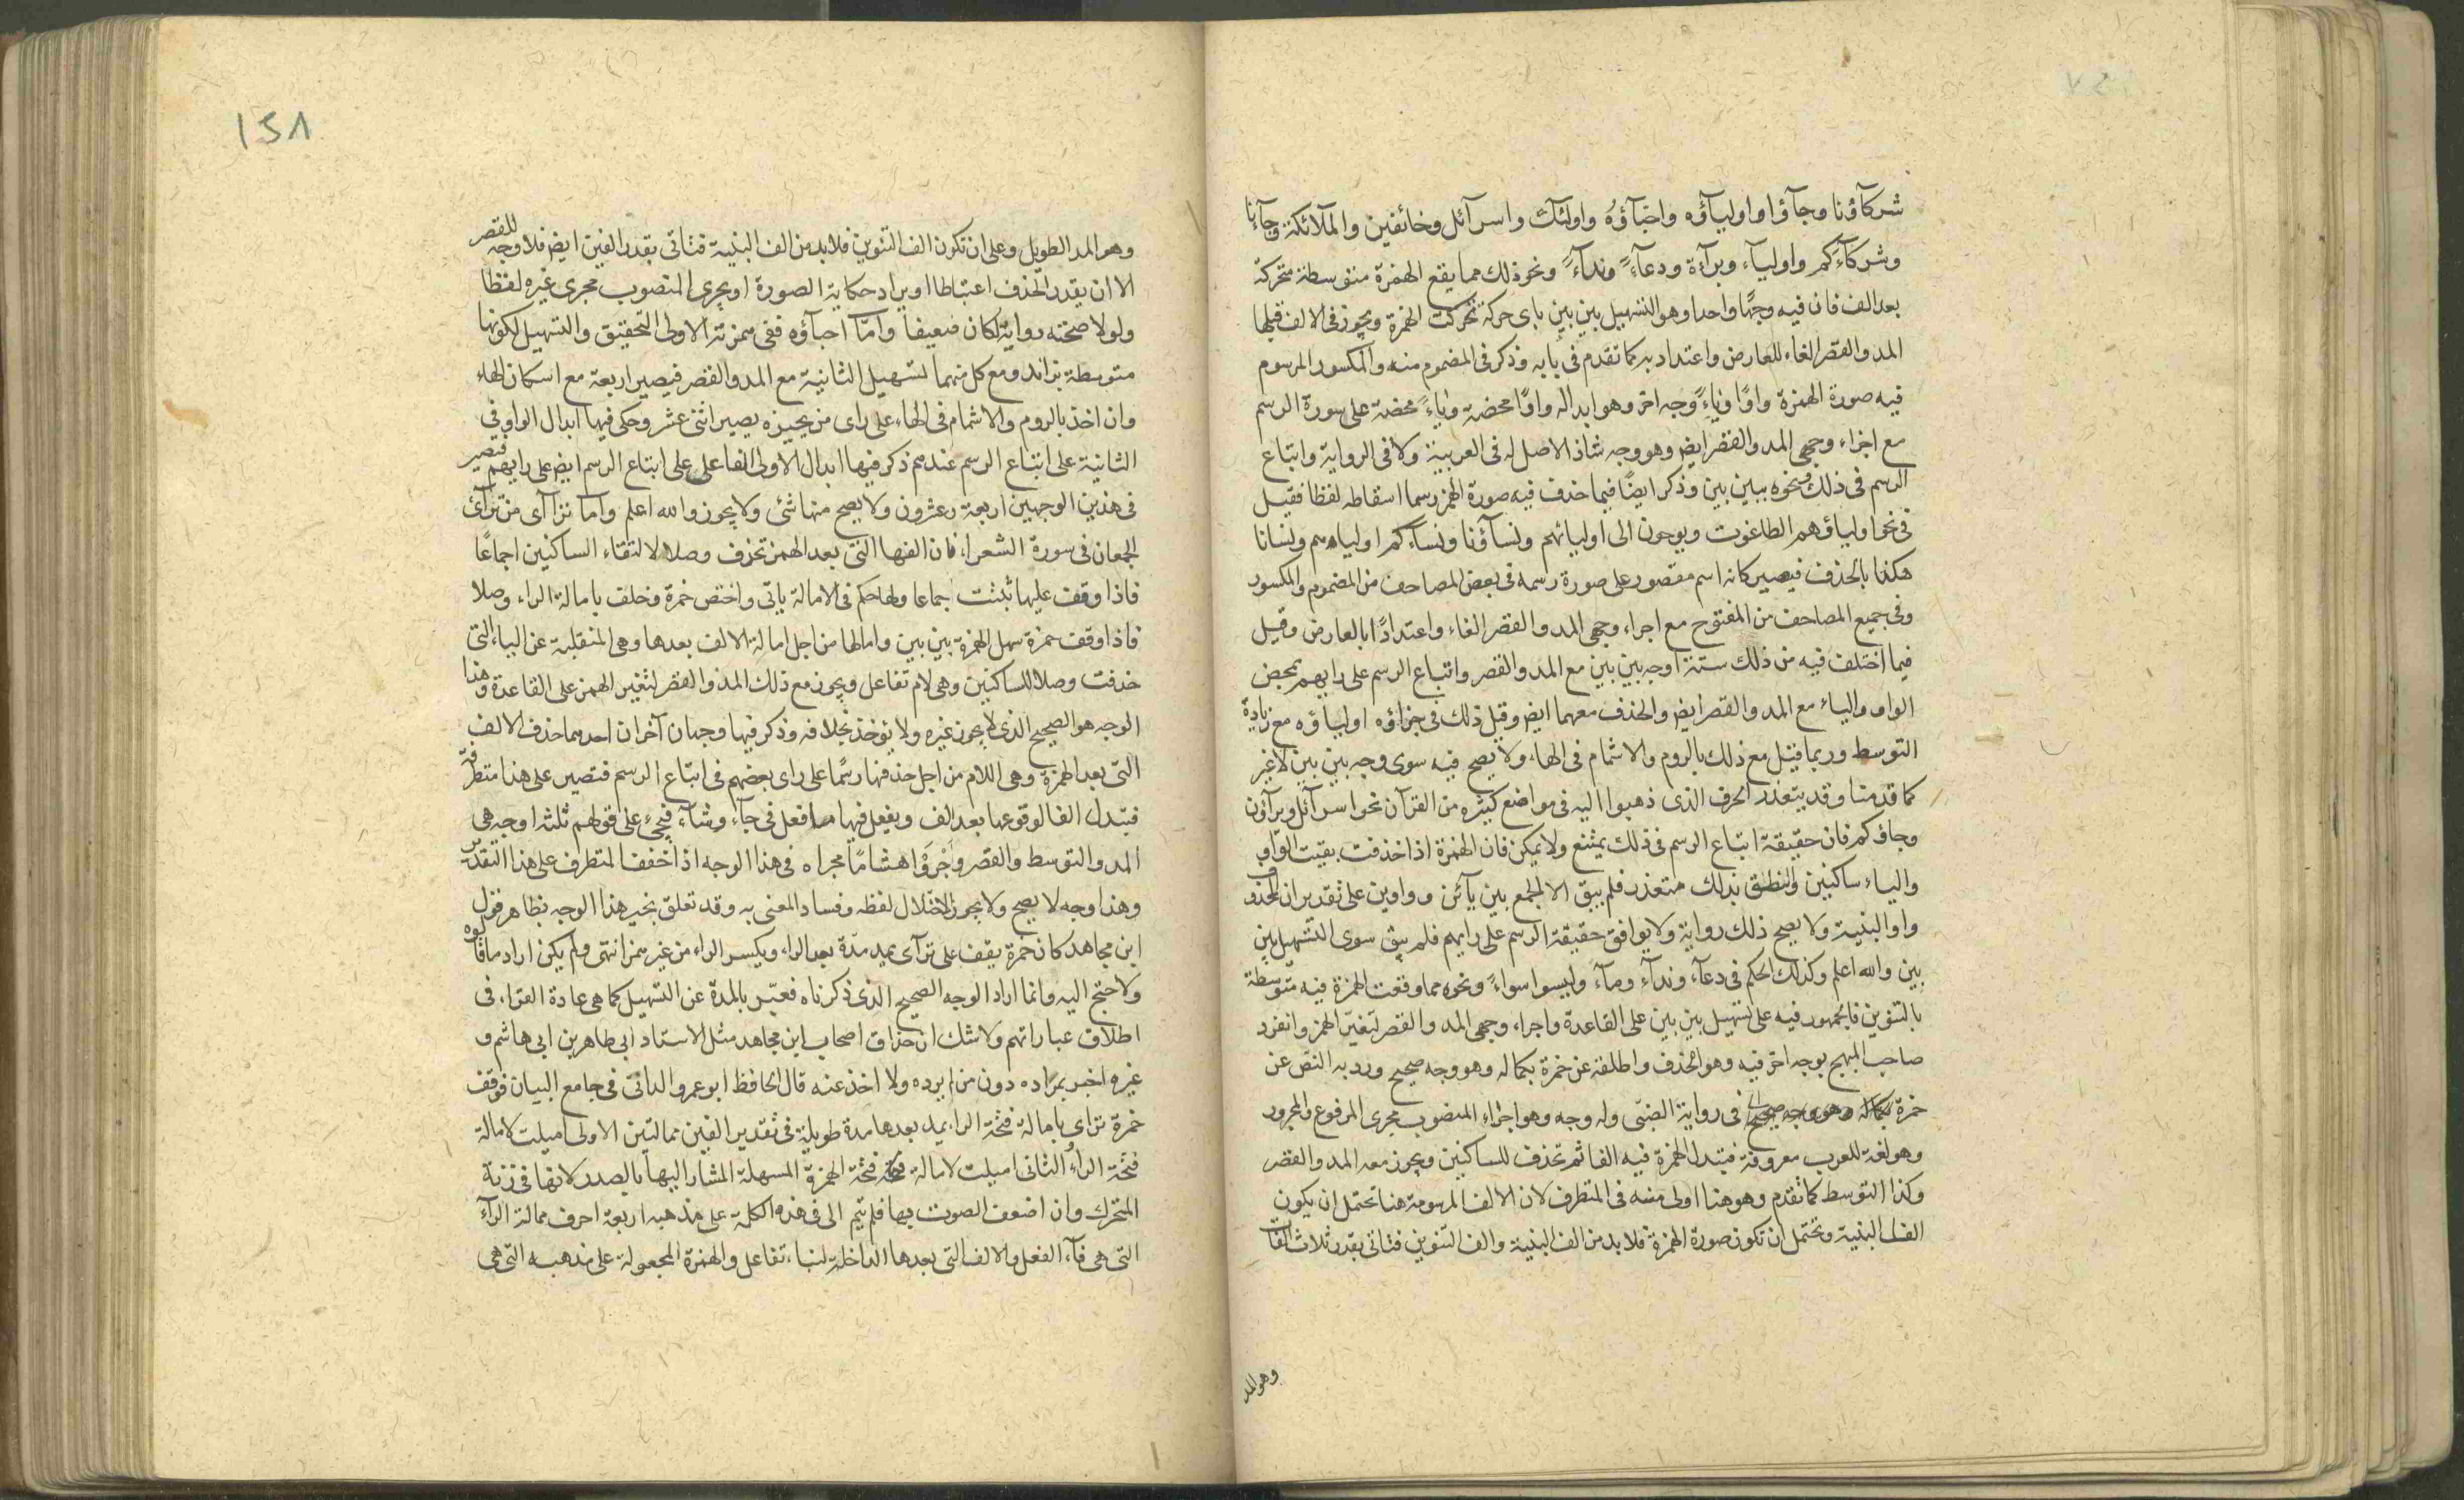 شركآؤنا وجآؤا واوليآؤه واحبآؤهُ واولئك واسرآئل وخائفين والملآئكة وجآءنا
وشركآءكم واوليآء وبرآءة ودعآءً وندآءً ونحو ذلك مما يقع الهمزة متوسطة متحركة
بعد الف فان فيه وجهًا واحدا وهو التسهيل بين بين باى حركة تحركت الهمزة ويجوز فى الالف قبلها
المد والقصر الغاء للعارض واعتداد به كما تقدم فى بابه وذكر فى المضموم منه والمكسور المرسوم
فيه صورة الهمزة واوًا وياءً وجه اخر وهو ابداله واوًا محضة وياءً محضة على سورة الرسم
مع اجراء وجهى المد والقصر ايض وهو وجه شاذ لاصل له فى العربية ولا فى الرواية واتباع
الرسم فى ذلك ونحوه ببين بين وذكر ايضًا فيما حذف فيه صورة الهمز رسما اسقاطه لفظا فقيل
فى نحو اولياؤهم الطاغوت ويوحون الى اوليائهم ونسآؤنا ونسآءكم اولياهم ونسانا
هكذا بالحذف فيصير كانه اسم مقصور على صورة رسمه فى بعض المصاحف من المضموم والمكسور
وفى جميع المصاحف من المفتوح مع اجراء وجهى المد والقصر الغاء واعتدادًا بالعارض وقيل
فيما اختلف فيه من ذلك ستة اوجه بين بين مع المد والقصر واتباع الرسم على رايهم بمحض
الواو والياء مع المد والقصر ايض والحذف معهما ايض وقيل ذلك فى جزاؤه اولياؤه مع زيادة
التوسط وربما قيل مع ذلك بالروم والاشمام فى الهاء ولا يصح فيه سوى وجه بين بين لاغير
كما قدمنا وقد يتعذر الحرف الذى ذهبوا اليه فى مواضع كثيره من القرآن نحو اسرآئل ويرآؤن
وجاؤكم فان حقيقة اتباع الرسم فى ذلك يمتنع ولا يمكن فان الهمزة اذا حذفت بقيت الواو
والياء ساكنين والنطق بذلك متعذر فلم يبق الا الجمع بين يآئن وواوين على تقدير ان المحذوف
واو البنية ولا يصح ذلك رواية ولا يوافق حقيقة الرسم على رايهم فلم يبق سوى التسهيل بين
بين والله اعلم وكذلك الحكم فى دعآء وندآء ومآء وليسوا سواءً ونحوه مما وقعت الهمزة فيه متوسطة
بالتنوين فالجمهور فيه على تسهيل بين بين على القاعدة واجراء وجهى المد والقصر لتغيّر الهمز وانفرد
صاحب المبهج بوجه اخر فيه وهو الحذف واطلقه عن حمزة بكماله وهو وجه صحيح ورد به النص عن
حمزة بكماله وهو وجه صحيح فى رواية الضبّى وله وجه وهو اجراء المنصوب مجرى المرفوع والمجرور
وهو لغة للعرب معروفة فتبدل الهمزة فيه الفا ثم تحذف للساكنين ويجوز معه المد والقصر
وكذا التوسط كما تقدم وهو هنا اولى منه فى المتطرف لان الالف المرسومة هنا تحتمل ان يكون
الف البنية وتحتمل ان تكون صورة الهمزة فلا بد من الف البنية والف التنوين فتأتى بقدر ثلاث الفات
وهو المد
١٤٨
وهو المد الطويل وعلى ان تكون الف التنوين فلا بد من الف البنية فتأتى بقدر الفين ايض فلا وجه للقصر
الا ان يقدر الحذف اعتباطا او يراد حكاية الصورة او يجرى المنصوب مجرى غيره لفظا
ولولا صحته رواية لكان ضعيفا وامّا احباؤه ففى همزته الاولى التحقيق والتسهيل لكونها
متوسطة بزائد ومع كل منهما تسهيل الثانية مع المد والقصر فيصير اربعة مع اسكان الهاء
وان اخذ بالروم والاشمام فى الهاء على راى من يجيزه يصير اثنى عشر وحكى فيها ابدال الواو فى
الثانية على اتباع الرسم عندهم ذكر فيها ابدال الاولى الفا على على اتباع الرسم ايض على رايهم فيصير
فى هذين الوجهين اربعة وعشرون ولا يصح منها شئ ولا يجوز والله اعلم واما ترآآى من ترآئ
الجمعان فى سورة الشعراء فان الفها التى بعد الهمز تحذف وصلا لالتقاء الساكنين اجماعًا
فاذا وقف عليها ثبتت اجماعا ولها حكم فى الامالة ياتى واختص حمزة وخلف بامالة الراء وصلا
فاذا وقف حمزة سهل الهمزة بين بين وامالها من اجل امالة الالف بعدها وهى المنقلبة عن الياء التى
حذفت وصلا للساكنين وهى لام تفاعل ويجوز مع ذلك المد والقصر لتغير الهمز على القاعدة وهذا
الوجه هو الصحيح الذى لا يجوز غيره ولا يؤخذ بخلافه وذكر فيها وجهان آخران احدهما حذف الالف
التى بعد الهمزة وهى اللام من اجل حذفها رسمًا على راى بعضهم فى اتباع الرسم فتصير على هذا متطرفة
فتبدل الفا لوقوعها بعد الف ويفعل فيها ما فعل فى جآء وشآء فيجئ على قولهم ثلثة اوجه هى
المد والتوسط والقصر واجروا هشامًا مجراه فى هذا الوجه اذا خفف المتطرف على هذا التقدير
وهذا وجه لا يصح ولا يجوز لاختلال لفظه وفساد المعنى به وقد تعلق بخير هذا الوجه بظاهر قول
ابن مجاهد كان حمزة يقف على ترآى يمد مدّة بعد الراء ويكسر الراء من غير همز انتهى ولم يكن اراد ما قالوه
ولا جنح اليه وانما اراد الوجه الصحيح الذى ذكرناه فعبّر بالمدة عن التسهيل كما هى عادة القراء فى
اطلاق عباراتهم ولا شك ان حذاق اصحاب ابن مجاهد مثل الاستاد ابى طاهر بن ابى هاشم و
غيره اخبر بمراده دون من لم يره ولا اخذ عنه قال الحافظ ابو عمرو الدانى فى جامع البيان فوقف
حمزة تراى بامالة فتحة الراء يمد بعدها مدة طويلة فى تقدير الفين ممالتين الاولى اميلت لامالة
فتحة الراء والثانى اميلت لامالة فتحة الهمزة المسهلة المشار اليها بالصدر لانها فى زنة
المتحرك وان اضعف الصوت بها فلم يتم الى فى هذه الكلمة على مذهبه اربعة احرف ممالة الرآء
التى هى فآء الفعل والالف التى بعدها الداخلة لبناء تفاعل والهمزة المجعولة على مذهبه التى هى